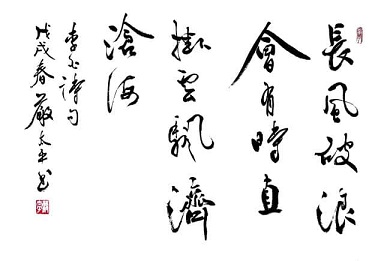 長風破浪
會有時直
掛雲颿濟
滄海
李白詩句
戊戌春嚴太平書